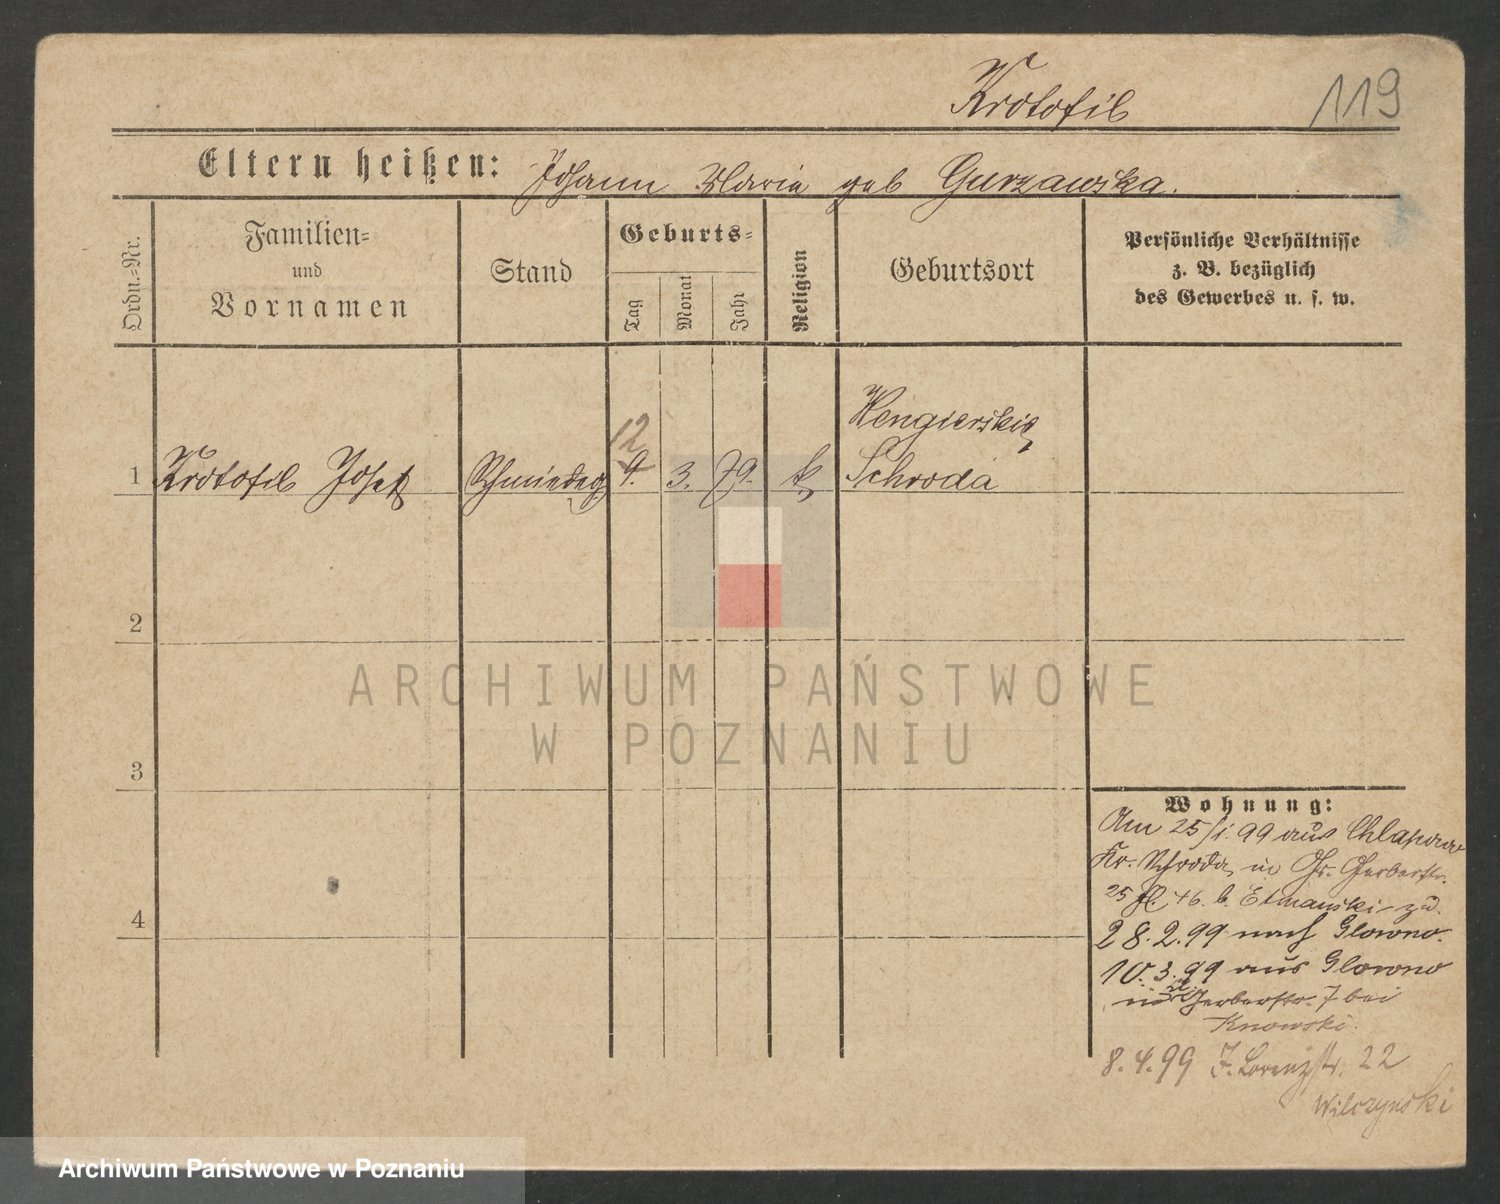 Krotofil 119
Eltern heißen: Johann Maria geb Gurzawska.
Ordn.-Nr.
Familien-
und
Vornamen
Stand
Geburts-
Tag
Monat
Jahr
Religion
Geburtsort
Persönliche Verhältnisse
z. B. bezüglich
des Gewerbes u. s. w.
12
Wengierskie
1 Krotofil Josef Schmiedeg 9. 3. 79. k Schroda
2
ARCHIWUM PAŃSTWOWE
W POZNANIU
3
Wohnung:
Am 25/1. 99 aus Chlapowo
Kr. Schroda in Gr. Gerberstr.
25 b. Etmanski zu.
28.2.99 nach Glowno.
10.3.99 aus Glowno
Gerberstr. 7 bei
Knowski.
4
8.4.99 Lorenzstr. 22
Wilczynski
Archiwum Państwowe w Poznaniu